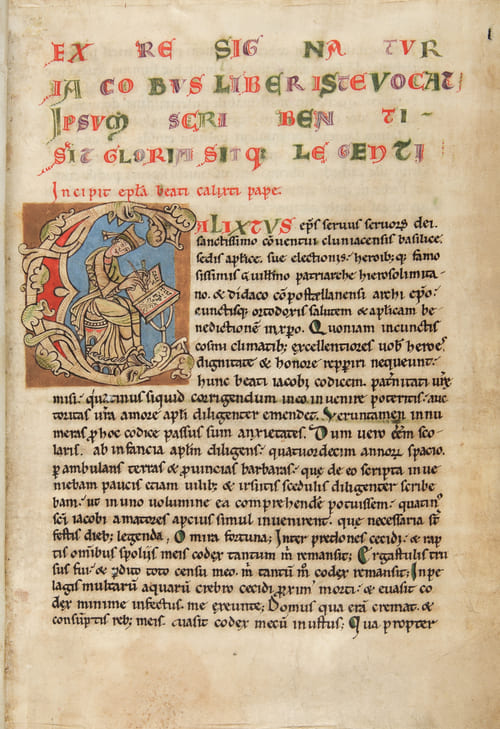 EX RE SIGNATUR
IACOBUS LIBER ISTE VOCAT
IPSUM SCRIBENTI-
SIT GLORIA SITQ; LEGENTI
Incipit epła beati calixti pape.
CALIXTUS eps seruus seruorꝝ dei.
sanctissimo cōuentui cluniacensis basilice.
sedis aplice. sue electionis. heroibꝫ famo
sissimis guillmo patriarche hierosolimita
no. & didaco cōpostellanensi archi epo.
cunctisqꝫ ortodoxis salutem & aplicam be
nedictionē in xpo. Quoniam in cunctis
cosmi climatibꝫ excellentiores uobꝫ heroes
dignitate & honore repperiri nequeunt.
hunc beati iacobi codicem. patnitati urē
misi. quatinus siquid corrigendum in eo inuenire poteritis. auc
toritas urā amore apli diligenter emendet. Veruntamen innu
meras p hoc codice passus sum anxietates. Dum uero eēm sco
laris. ab infancia aplm diligens. quatuordecim annorꝝ spacio.
p ambulans terras & puincias barbaras. que de eo scripta inue
niebam paucis etiam uilibꝫ & irsutis scedulis diligenter scribe
bam. ut in uno uolumine ea comprehendē potuissem. quatinꝰ
sci iacobi amatores apcius simul inuenirent. que necessaria st
festis diebꝫ legenda, O mira fortuna; Inter predones cecidi. & rap
tis omibus spolijs meis codex tantum m remansit; Ergastulis tru
sus fui. & pdito toto censu meo. m tantū m codex remansit; In pe
lagis multarū aquarū crebro cecidi. pxim morti. & euasit co
dex minime infectus. me exeunte; Domus qua erā cremat. &
consūptis rebꝫ meis. euasit codex mecū inustus; Qua propter